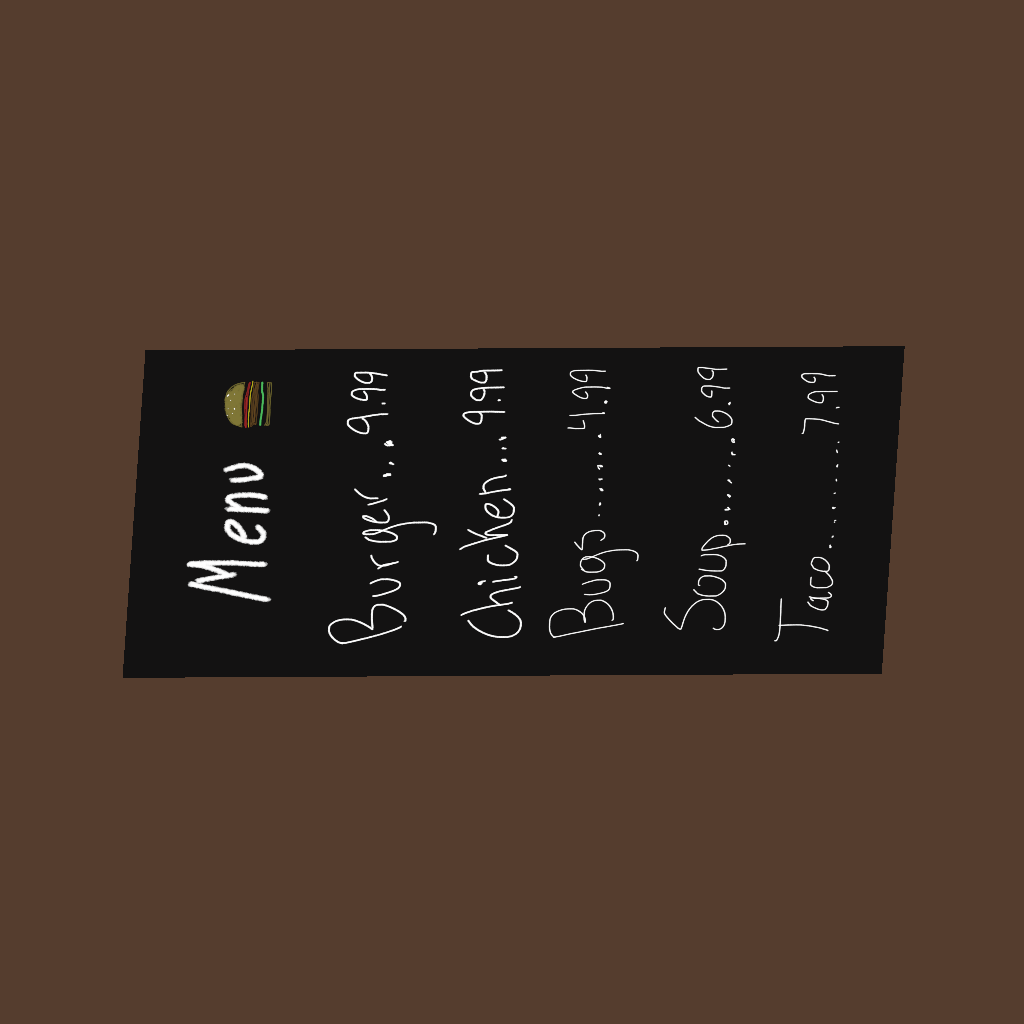 Menu
Burger...9.99
Chicken...9.99
Bugs........4.99
Soup........6.99
Taco.........7.99